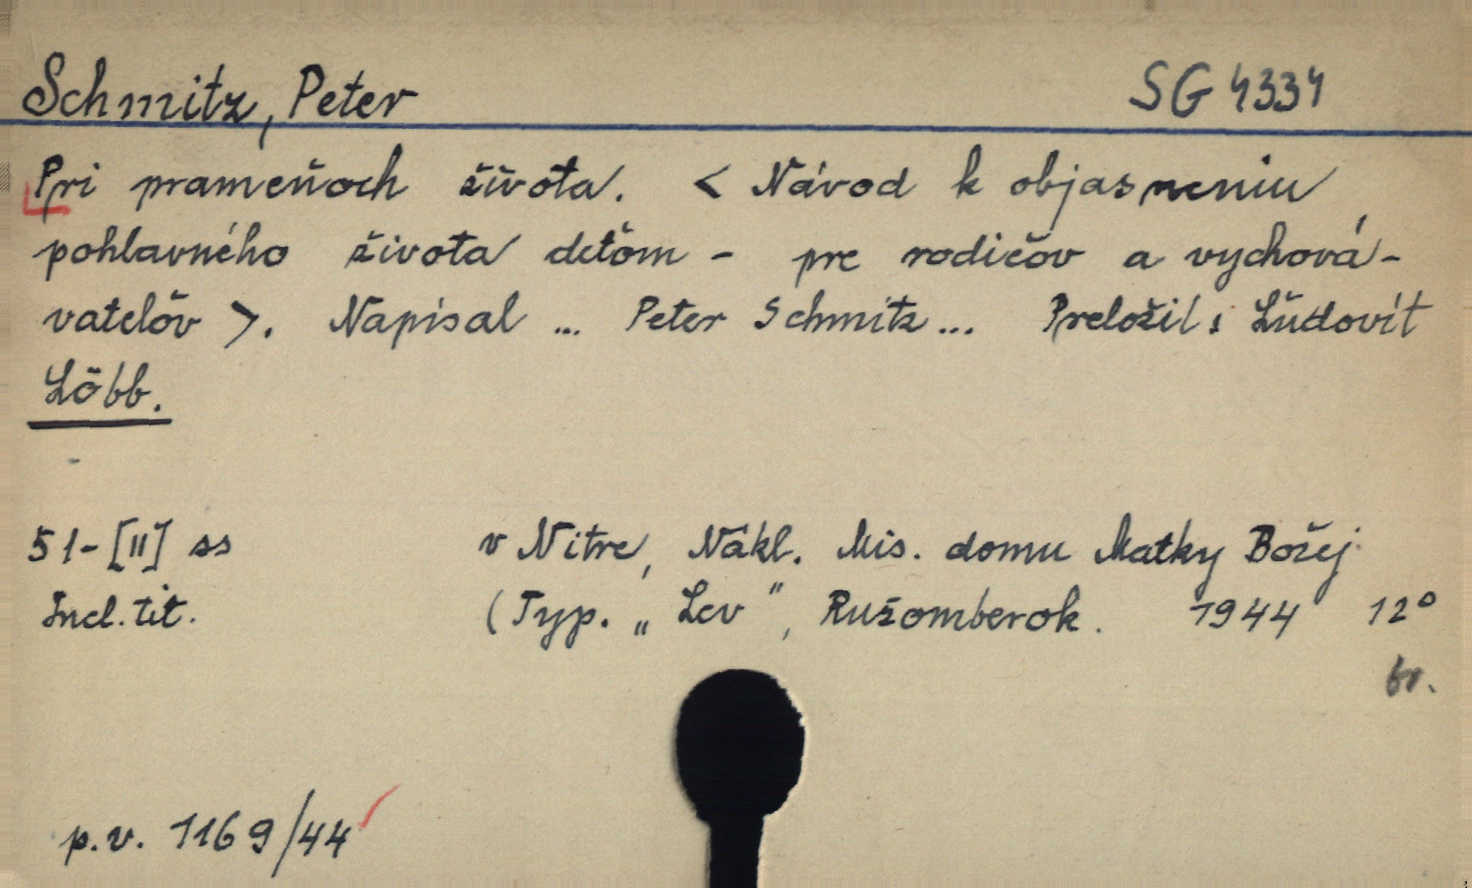 Schmitz, Peter SG 4334
Pri prameňoch života. < Návod k objasneniu
pohlavného života deťom - pre rodičov a vychová-
vateľov >. Napísal ... Peter Schmitz ... Preložil: Ľudovít
Löbb.
51-[II] ss v Nitre, Nákl. Mis. domu Matky Božej
Incl. tit. (Typ. „Lev", Ružomberok. 1944 12°
br.
p.v. 1169/44